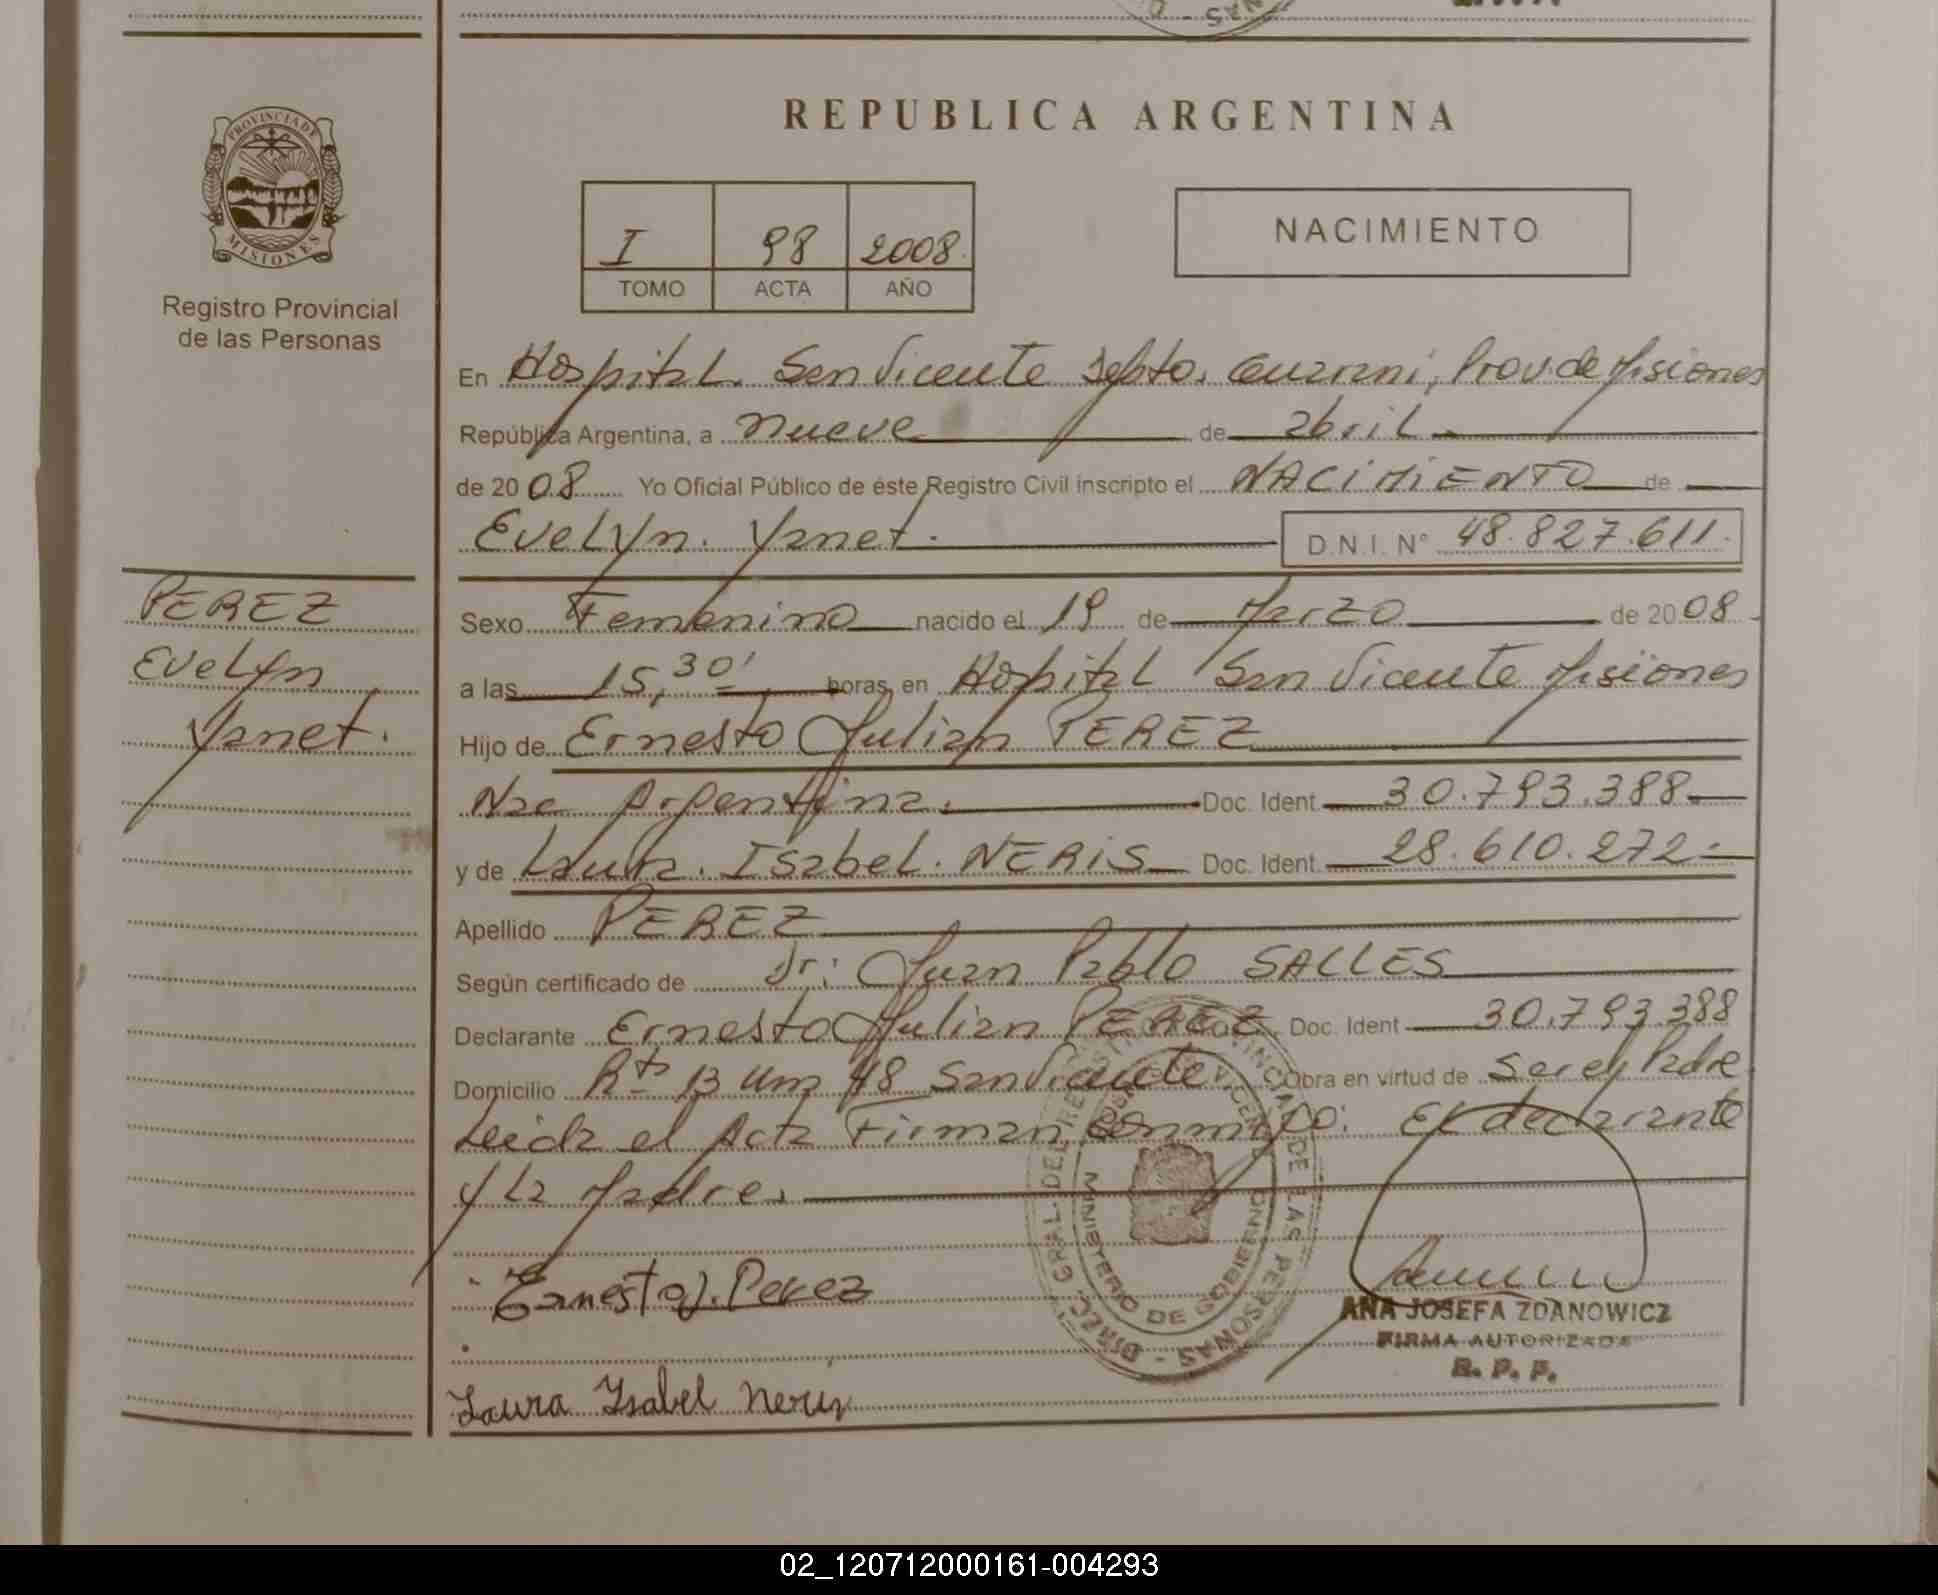 REPUBLICA ARGENTINA
PROVINCIA DE
MISIONES
Registro Provincial
de las Personas
I 98 2008
TOMO ACTA AÑO
NACIMIENTO
En Hospital San Vicente Depto. Guarani, Prov. de Misiones
República Argentina, a nueve de abril
de 2008 Yo Oficial Público de éste Registro Civil inscripto el NACIMIENTO de
Evelyn Yanet. D.N.I. N° 48.827.611.
PEREZ
Evelyn
Yanet.
Sexo Femenino nacido el 19 de Marzo de 2008
a las 15,30' horas, en Hospital San Vicente Misiones
Hijo de Ernesto Julian PEREZ
Nac Argentina. Doc. Ident. 30.793.388
y de Laura Isabel NERIS Doc. Ident. 28.610.272
Apellido PEREZ
Según certificado de Dr: Juan Pablo SALLES
Declarante Ernesto Julian PEREZ Doc. Ident 30.793.388
Domicilio Rta 13 km 48 San Vicente Obra en virtud de ser el Padre
Leida el Acta Firman conmigo: El declarante
y La Madre.
Ernesto J. Perez
Laura Ysabel Neris
DIREC. GRAL. DEL REGISTRO PROVINCIAL DE LAS PERSONAS
MINISTERIO DE GOBIERNO
ANA JOSEFA ZDANOWICZ
FIRMA AUTORIZADA
R. P. P.
02_120712000161-004293